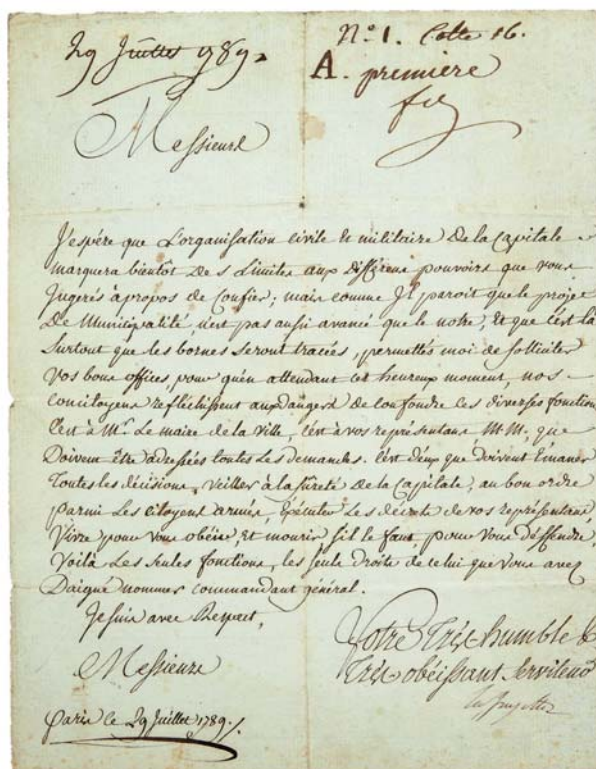 29 Juillet 1789.
N.º 1. Cotte 16.
A. première
Messieurs
J'espère que L'organisation civile & militaire De la Capitale
marquera bientôt Des Limites aux Différens pouvoirs que vous
Jugerés à propos de Confier; mais comme Jl paroit que le projet
De Municipalité, n'est pas aussi avancé que le notre, Et que C'est là
Surtout que les bornes seront tracées, permettés moi de solliciter
Vos bons offices, pour qu'en attendant cet heureux moment, nos
concitoyens refléchissent aux dangers de confondre ces diverses fonctions
C'est à Mr. Le maire de la ville, c'est à vos représentans, M.M, que
Doivent être adressées toutes Les demandes. C'est d'eux que doivent Emaner
Toutes les décisions, veiller à la sûreté De la Capitale, au bon ordre
parmi Les citoyens armés, Exécuter Les décrets de vos représentans,
Vivre pour vous obéir, Et mourir s'il le faut, pour vous déffendre,
Voilà Les seules fonctions, les seuls droits de celui que vous avez
Daigné nommer commandant général.
Je suis avec Respect,
Messieurs
Votre Très humble &
Très obéissant Serviteur
Lafayette
Paris le 29 Juillet 1789./.